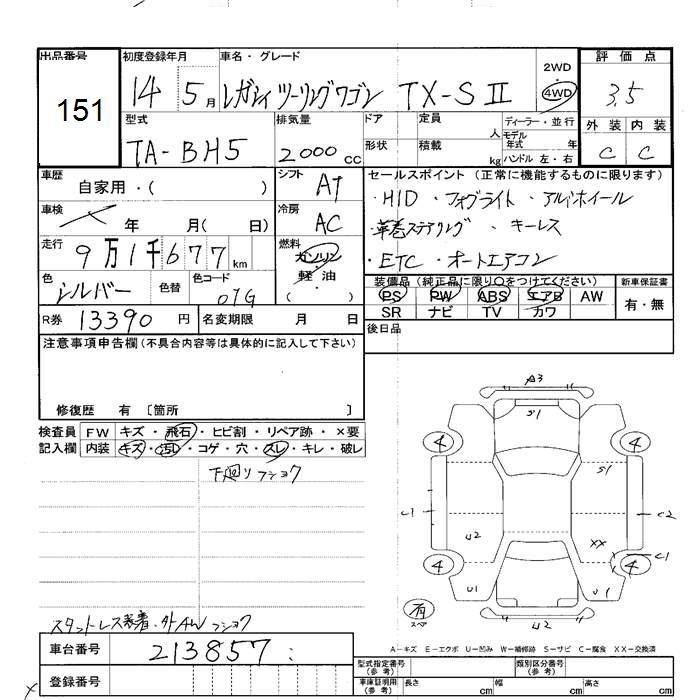 出品番号 初度登録年月 車名・グレード 2WD 評価点
151 14 5月 レガシィツーリングワゴン TX-SⅡ 4WD 3.5
型式 排気量 ドア 定員 人 ディーラー・並行 外装 内装
TA-BH5 2000cc 形状 積載 kg モデル年式 年 C C
ハンドル 左・右
車歴 自家用・( ) シフト AT セールスポイント (正常に機能するものに限ります)
・HID ・フォグライト ・アルミホイール
車検 年 月( 日) 冷房 AC ・革巻ステアリング ・キーレス
走行 9万1千677km 燃料 ガソリン ・ETC ・オートエアコン
軽・油
( )
色 シルバー 色替 色コード 01G 装備品(純正品に限り○をつけてください) 新車保証書
PS PW ABS エアB AW 有・無
R券 13390円 名変期限 月 日 SR ナビ TV カワ
注意事項申告欄(不具合内容等は具体的に記入して下さい) 後日品
修復歴 有 〔箇所 〕
検査員 FW キズ・飛石・ヒビ割・リペア跡・×要
記入欄 内装 キズ・汚レ・コゲ・穴・スレ・キレ・破レ
下廻りフショク
A3
S1
4 4
S1
C1 C2
U2 XX
C1
4 4
U1 U1
有 スペア
U2
スタットレス装着・外AWフショク
A-キズ E-エクボ U-凹み W-補修跡 S-サビ C-腐食 XX-交換済
車台番号 213857
型式指定番号(参考) 類別区分番号(参考)
登録番号 車庫証明用(参考) 長さ cm 幅 cm 高さ cm